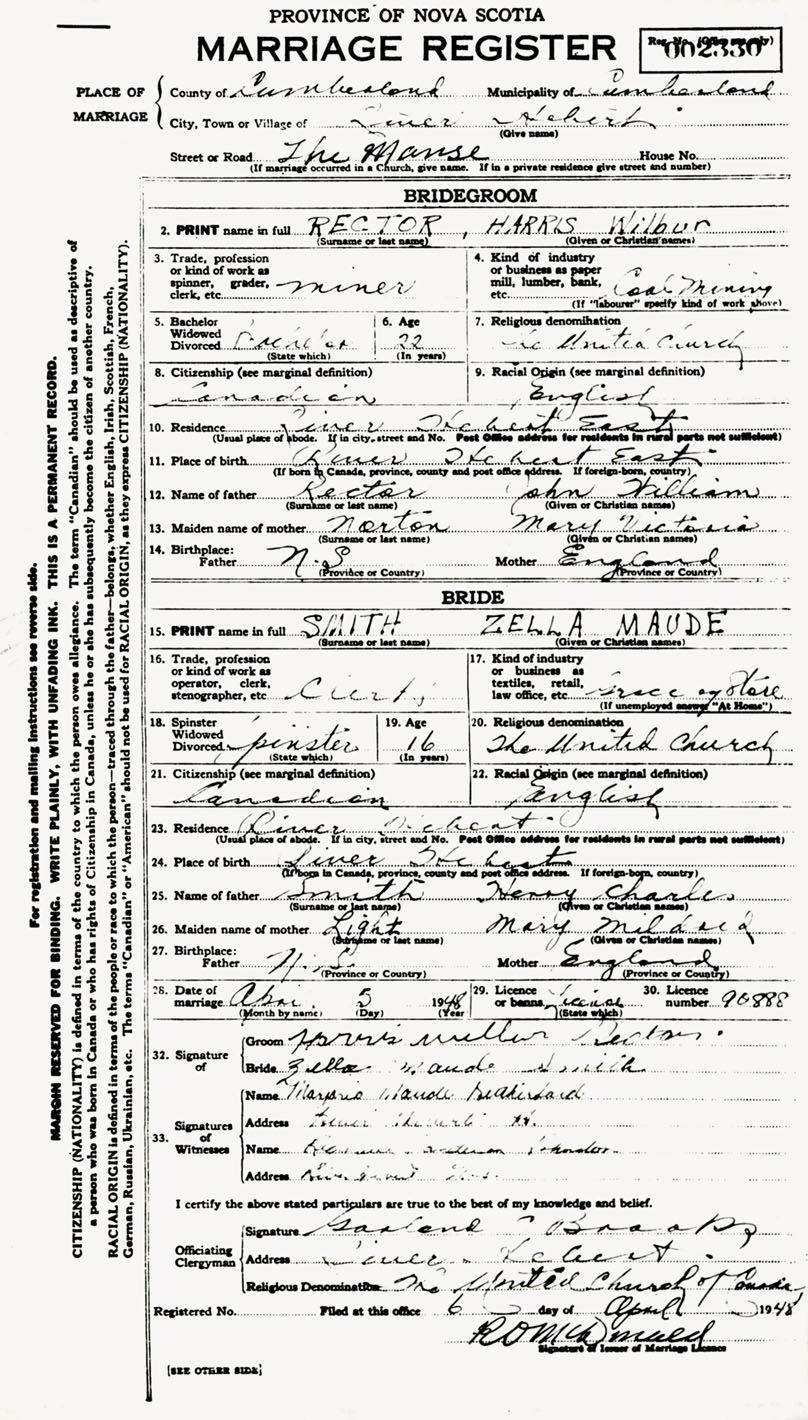 PROVINCE OF NOVA SCOTIA
MARRIAGE REGISTER
Reg. No. (Office use only)
002330
PLACE OF MARRIAGE
County of Cumberland Municipality of Cumberland
City, Town or Village of River Hebert
(Give name)
Street or Road The Manse House No.
(If marriage occurred in a Church, give name. If in a private residence give street and number)
BRIDEGROOM
2. PRINT name in full RECTOR, HARRIS Wilbur
(Surname or last name) (Given or Christian names)
3. Trade, profession or kind of work as spinner, grader, clerk, etc. miner
4. Kind of industry or business as paper mill, lumber, bank, etc. Coal Mining
(If "labourer" specify kind of work above)
5. Bachelor Widowed Divorced Bachelor
(State which)
6. Age 22
(In years)
7. Religious denomination The United Church
8. Citizenship (see marginal definition) Canadian
9. Racial Origin (see marginal definition) English
10. Residence River Hebert East
(Usual place of abode. If in city, street and No. Post Office address for residents in rural parts not sufficient)
11. Place of birth River Hebert East
(If born in Canada, province, county and post office address. If foreign-born, country)
12. Name of father Rector John William
(Surname or last name) (Given or Christian names)
13. Maiden name of mother Norton Mary Victoria
(Surname or last name) (Given or Christian names)
14. Birthplace: Father N.S Mother England
(Province or Country) (Province or Country)
BRIDE
15. PRINT name in full SMITH ZELLA MAUDE
(Surname or last name) (Given or Christian names)
16. Trade, profession or kind of work as operator, clerk, stenographer, etc Clerk
17. Kind of industry or business as textiles, retail, law office, etc. Grocery Store
(If unemployed answer "At Home")
18. Spinster Widowed Divorced Spinster
(State which)
19. Age 16
(In years)
20. Religious denomination The United Church
21. Citizenship (see marginal definition) Canadian
22. Racial Origin (see marginal definition) English
23. Residence River Hebert
(Usual place of abode. If in city, street and No. Post Office address for residents in rural parts not sufficient)
24. Place of birth River Hebert
(If born in Canada, province, county and post office address. If foreign-born, country)
25. Name of father Smith Henry Charles
(Surname or last name) (Given or Christian names)
26. Maiden name of mother Light Mary Mildred
(Surname or last name) (Given or Christian names)
27. Birthplace: Father N.S. Mother England
(Province or Country) (Province or Country)
28. Date of marriage April 5 1948
(Month by name) (Day) (Year)
29. Licence or banns License
(State which)
30. Licence number 90888
32. Signature of
Groom Harris Wilbur Rector
Bride Zella Maude Smith
33. Signatures of Witnesses
Name Marjorie Maude
Address River Hebert
Name
Address River Hebert N.S.
I certify the above stated particulars are true to the best of my knowledge and belief.
Officiating Clergyman
Signature Garland Brooks
Address River Hebert
Religious Denomination The United Church of Canada
Registered No. Filed at this office 6 day of April 1948
Signature of Issuer of Marriage Licence
[SEE OTHER SIDE]
For registration and mailing instructions see reverse side.
MARGIN RESERVED FOR BINDING. WRITE PLAINLY, WITH UNFADING INK. THIS IS A PERMANENT RECORD.
CITIZENSHIP (NATIONALITY) is defined in terms of the country to which the person owes allegiance. The term "Canadian" should be used as descriptive of
a person who was born in Canada or who has rights of Citizenship in Canada, unless he or she has subsequently become the citizen of another country.
RACIAL ORIGIN is defined in terms of the people or race to which the person—traced through the father—belongs, whether English, Irish, Scottish, French,
German, Russian, Ukrainian, etc. The terms "Canadian" or "American" should not be used for RACIAL ORIGIN, as they express CITIZENSHIP (NATIONALITY).